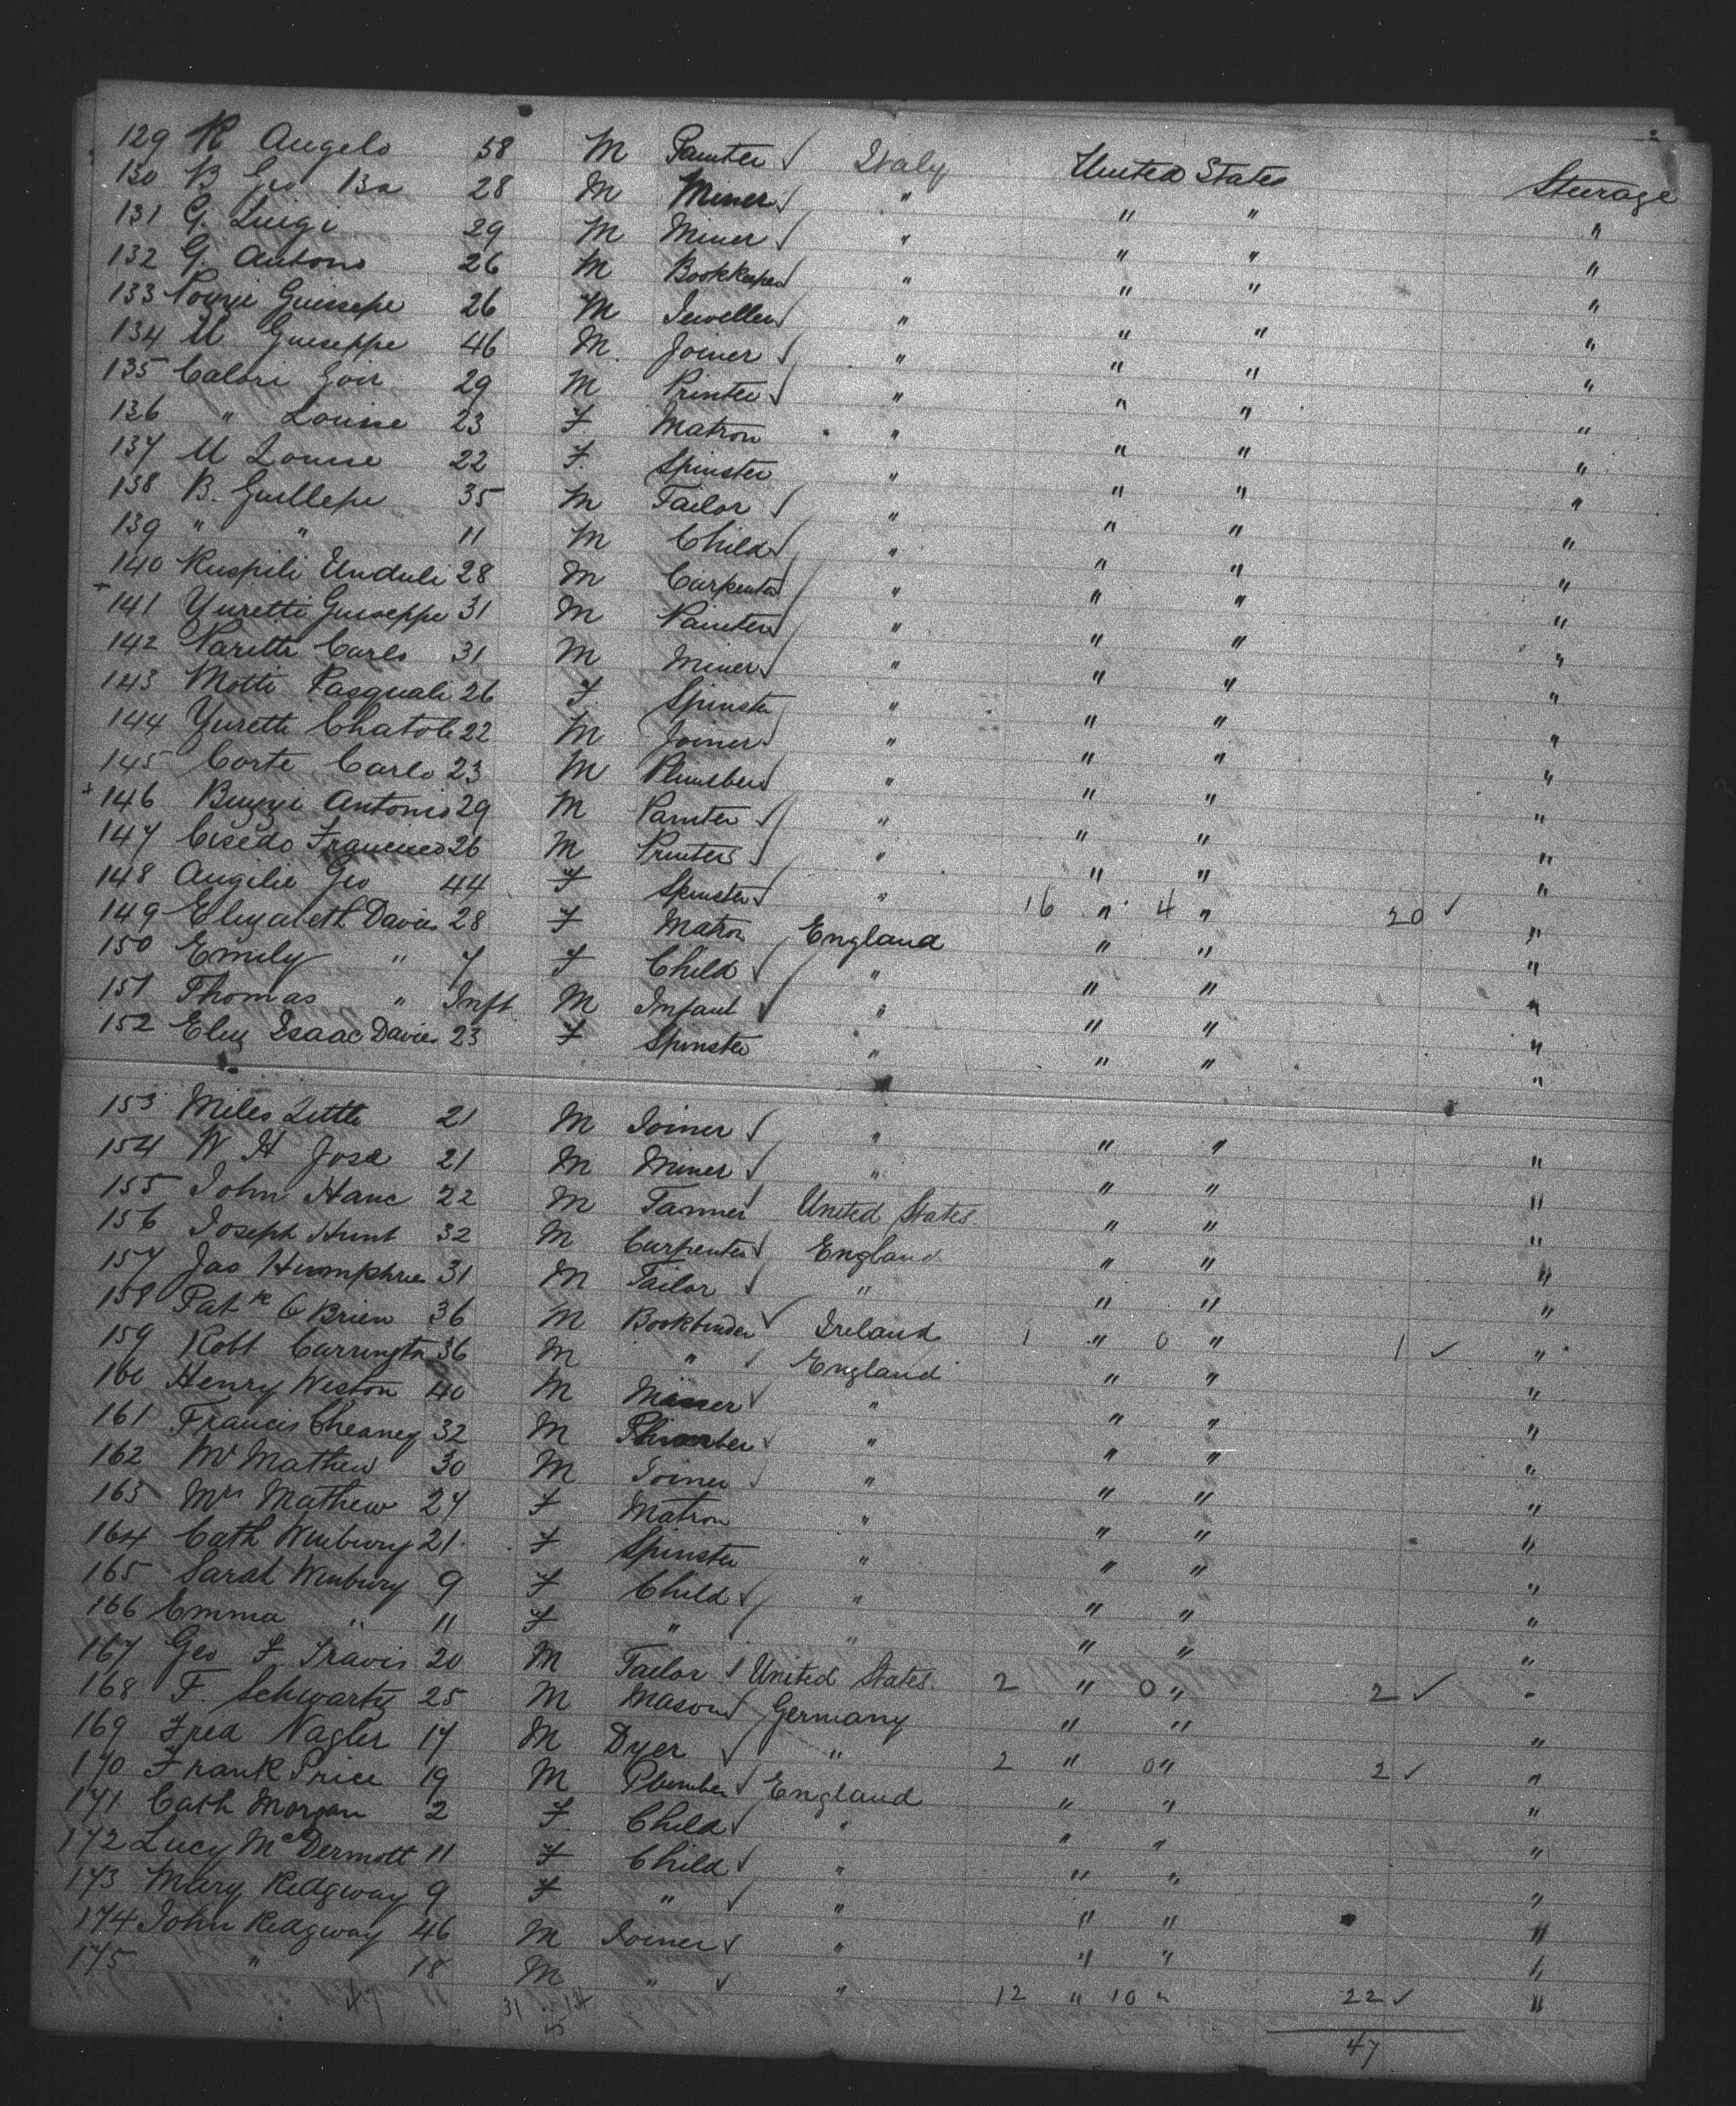 129 R Angelo 58 M Painter ✓ Italy United States Steerage
130 B Geo Ba 28 M Miner ✓ " " " "
131 G. Luigi 29 M Miner ✓ " " " "
132 G Antono 26 M Bookkeeper ✓ " " " "
133 Pouzi Guissepe 26 M Jeweller ✓ " " " "
134 M Guiseppe 46 M. Joiner ✓ " " " "
135 Calori 29 M Printer ✓ " " " "
136 " Louise 23 F. Matron " " " "
137 M Louise 22 F. Spinster " " " "
138 B. Guillepe 35 M Tailor ✓ " " " "
139 " " 11 M Child ✓ " " " "
140 Ruspili Unduli 28 M Carpenter ✓ " " " "
141 Yuretti Guiseppe 31 M Painter ✓ " " " "
142 Paretti Carlo 31 M Miner ✓ " " " "
143 Motti Pasquali 26 F Spinster " " " "
144 Yuretti Chatole 22 M Joiner ✓ " " " "
145 Corte Carlo 23 M Plumber ✓ " " " "
146 Buzzi Antonio 29 M Painter ✓ " " " "
147 Cisedo Francisco 26 M Printer ✓ " " " "
148 Angilie Geo 44 F Spinster ✓ " 16 " 4 " 20 ✓ "
149 Elizabeth Davies 28 F Matron England " " "
150 Emily " 7 F Child ✓ " " " "
151 Thomas " Inft. M Infant ✓ " " " "
152 Eliz Isaac Davies 23 F Spinster " " " "
153 Miles Little 21 M Joiner ✓ " " " "
154 W H Jose 21 M Miner ✓ " " " "
155 John Hanc 22 M Tanner ✓ United States " " "
156 Joseph Hunt 32 M Carpenter ✓ England " " "
157 Jas Humphries 31 M Tailor ✓ " " " "
158 Patk O Brien 36 M Bookbinder ✓ Ireland 1 " 0 " 1 ✓ "
159 Robt Carrington 36 M " ✓ England " " "
160 Henry Weston 40 M ✓ " " " "
161 Francis Cheaney 32 M Plumber ✓ " " " "
162 Mr Mathew 30 M Joiner ✓ " " " "
163 Mrs Mathew 27 F Matron " " " "
164 Cath Winbury 21 F Spinster " " " "
165 Sarah Winbury 9 F Child ✓ " " " "
166 Emma " 11 F " ✓ " " " "
167 Geo F Travis 20 M Tailor ✓ United States 2 " 0 " 2 ✓ "
168 F. Schwartz 25 M Mason ✓ Germany " " "
169 Fred Nagler 17 M Dyer ✓ " 2 " 0 " 2 ✓ "
170 Frank Price 19 M Plumber ✓ England " " "
171 Cath Morgan 2 F. Child ✓ " " " "
172 Lucy McDermott 11 F Child ✓ " " " "
173 Mary Ridgway 9 F " ✓ " " " "
174 John Ridgway 46 M Joiner ✓ " " " "
175 " 18 M " ✓ " 12 " 10 " 22 ✓ "
47 31 14 47